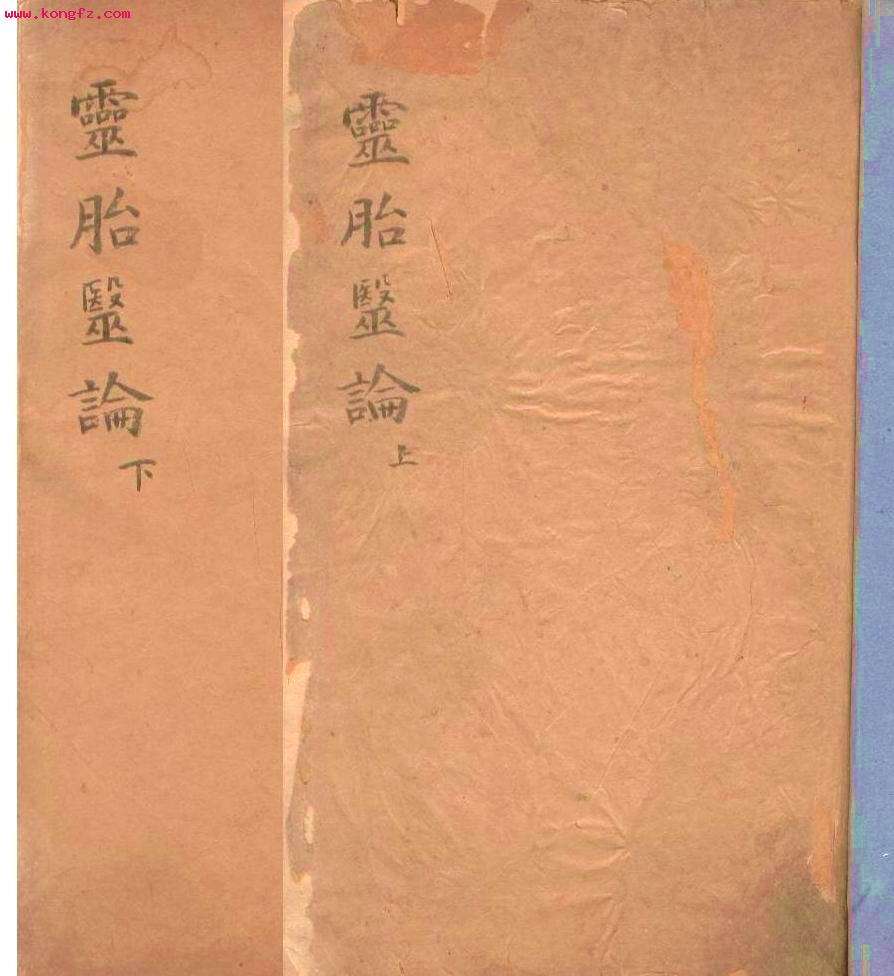 www.kongfz.com
靈胎毉論 上
靈胎毉論 下